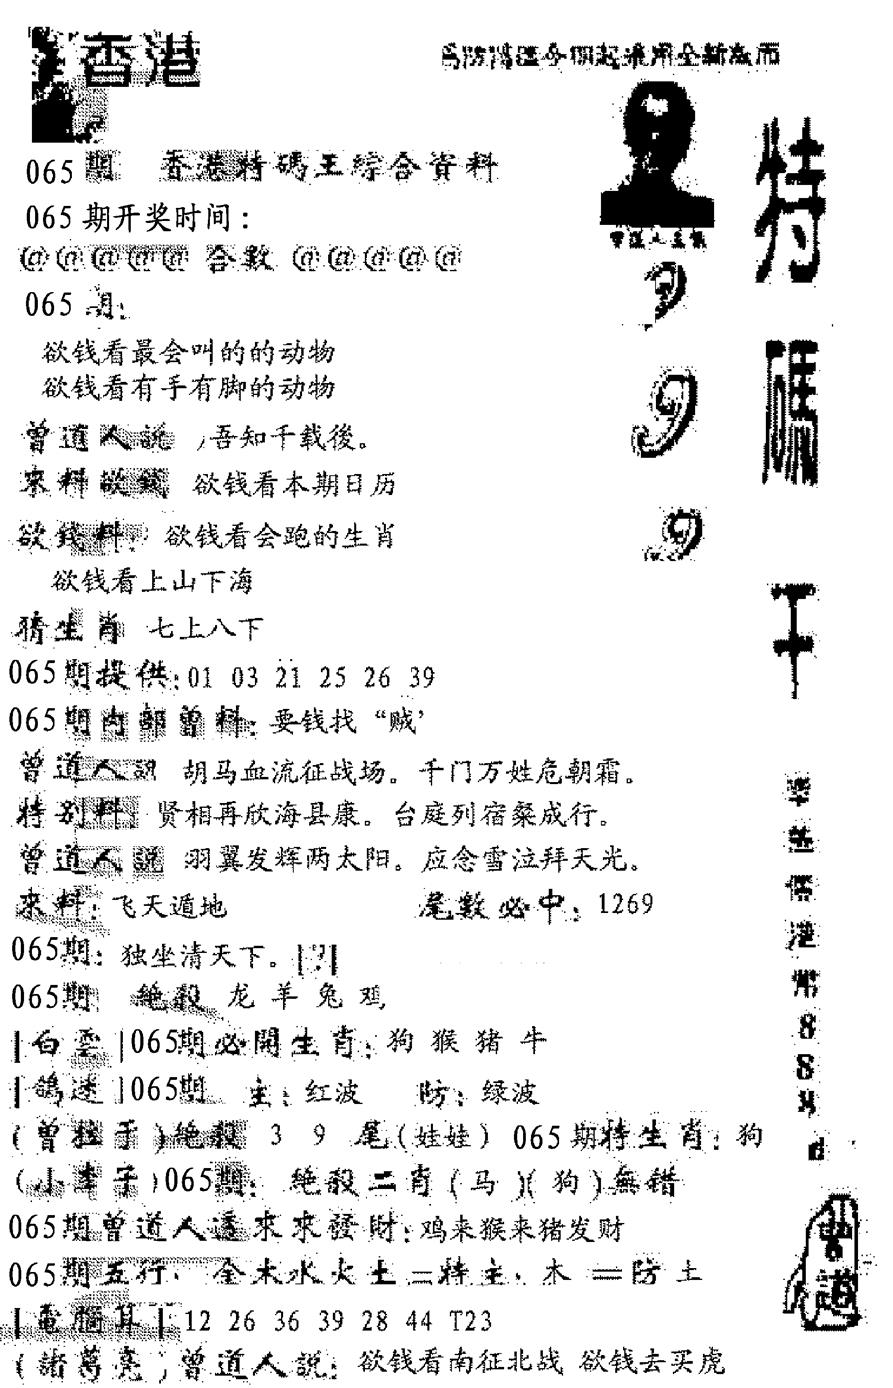 香港
065期 香港特碼王综合資料
065期开奖时间：
@@@@@ 合数 @@@@@
065 期：
欲钱看最会叫的的动物
欲钱看有手有脚的动物
曾道人説 吾知千载後。
來料欲钱 欲钱看本期日历
欲钱料：欲钱看会跑的生肖
欲钱看上山下海
猜生肖 七上八下
065期提供：01 03 21 25 26 39
065期内部曾料：要钱找“贼’
曾道人説 胡马血流征战场。千门万姓危朝霜。
特别料：贤相再欣海县康。台庭列宿粲成行。
曾道人説 羽翼发辉两太阳。应念雪泣拜天光。
来料：飞天遁地 尾數必中：1269
065期：独坐清天下。|?|
065期 絶殺 龙 羊 兔 鸡
|白 |065期必開生肖：狗 猴 猪 牛
|鴿迷|065期 主：红波 防：绿波
(曾 )絶殺 3 9 尾(娃娃) 065期特生肖：狗
(小李子)065期：絶殺二肖(马)(狗)無错
065期曾道人透來來發財：鸡来猴来猪发财
065期五行：金木水火土=特主：木=防土
|電腦算|12 26 36 39 28 44 T23
(諸葛亮)曾道人説：欲钱看南征北战 欲钱去买虎
特碼王